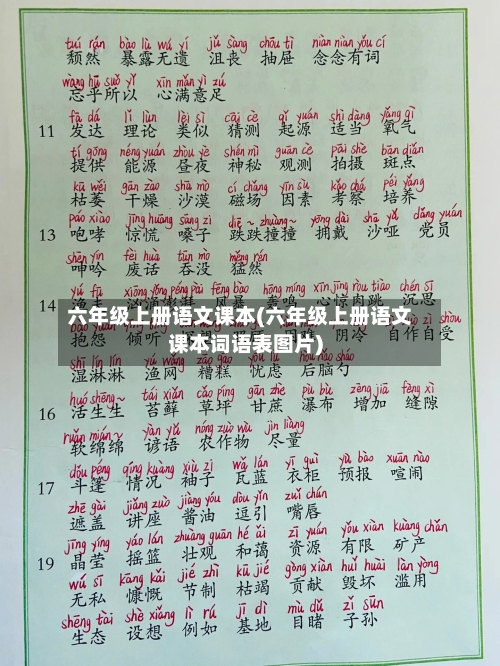 tuí rán bào lù wú yí jǔ sàng chōu tì niàn niàn yǒu cí
颓然 暴露无遗 沮丧 抽屉 念念有词
wàng hū suǒ yǐ xīn mǎn yì zú
忘乎所以 心满意足
fā dá lǐ lùn lèi sì cāi cè qǐ yuán shì dàng yǎng qì
11 发达 理论 类似 猜测 起源 适当 氧气
tí gōng néng yuán zhòu yè shén mì guān cè pāi shè bān diǎn
提供 能源 昼夜 神秘 观测 拍摄 斑点
kū wěi gān zào shā mò cí chǎng yīn sù kǎo chá péi yǎng
枯萎 干燥 沙漠 磁场 因素 考察 培养
páo xiào jīng huāng sǎng zi diē~ zhuàng~ yōng dài shā yǎ dǎng yuán
13 咆哮 惊慌 嗓子 跌跌撞撞 拥戴 沙哑 党员
shēn yín fèi huà tūn mò měng rán
呻吟 废话 吞没 猛然
yú fū xiōng yǒng péng pài fēng bào hōng míng xīn jīng ròu tiào chén sī
14
六年级上册语文课本(六年级上册语文
课本词语表图片)
抱怨 倾听 阴冷 自作自受
shī lín lín yú wǎng zāo gāo yōu lǜ hòu nǎo sháo
湿淋淋 渔网 糟糕 忧虑 后脑勺
huó shēng~ tái xiǎn cǎo píng gān zhè pù bù zēng jiā fèng xì
16 活生生 苔藓 草坪 甘蔗 瀑布 增加 缝隙
ruǎn mián~ yàn yǔ nóng zuò wù jìn liàng
软绵绵 谚语 农作物 尽量
dǒu péng qíng kuàng xiù zi wǎ lán yī guì yù bào xuān nào
17 斗篷 情况 袖子 瓦蓝 衣柜 预报 喧闹
zhē gài jiǎng zuò jiàng yóu dòu yǐn zuǐ chún
遮盖 讲座 酱油 逗引 嘴唇
jīng yíng yáo lán zhuàng guān hé ǎi zī yuán yǒu xiàn kuàng chǎn
19 晶莹 摇篮 壮观 和蔼 资源 有限 矿产
wú sī kāng kǎi jié zhì kū jié gòng xiàn huǐ huài làn yòng
无私 慷慨 节制 枯竭 贡献 毁坏 滥用
shēng tài shè xiǎng lì rú jī dì mù dǔ zǐ sūn
生态 设想 例如 基地 目睹 子孙